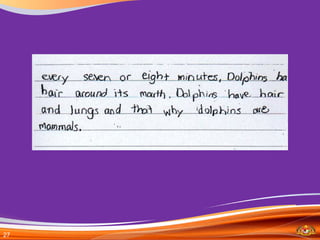 every seven or eight minutes, Dolphins ha
hair around its mouth. Dolphins have hair
and lungs and that why dolphins are
mammals.
27